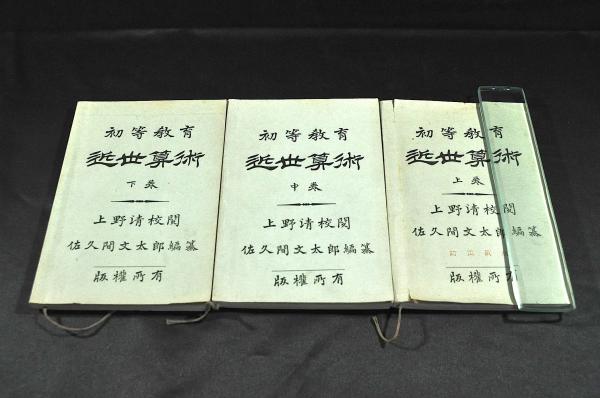 初等教育
近世算術
下巻
上野清校閲
佐久間文太郎編纂
版權所有
初等教育
近世算術
中巻
上野清校閲
佐久間文太郎編纂
版權所有
初等教育
近世算術
上巻
上野清校閲
佐久間文太郎編纂
版權所有